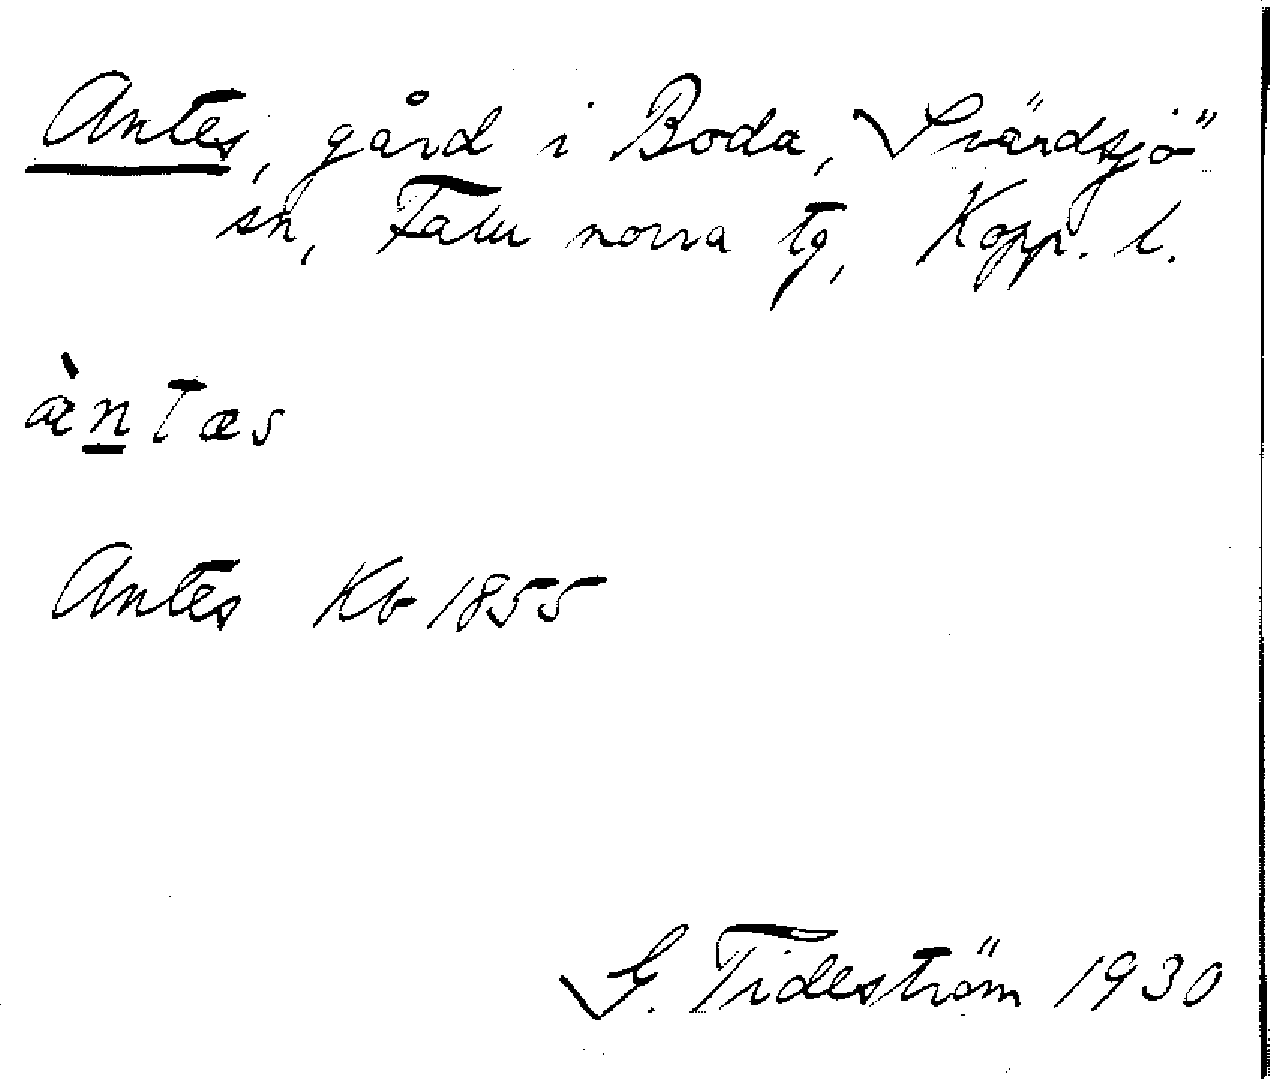 Antes, gård i Boda, Svärdsjö
sn, Falu norra tg, Kopp. l.
æ̀n̲tæs
Antes Kb 1855
G. Tideström 1930